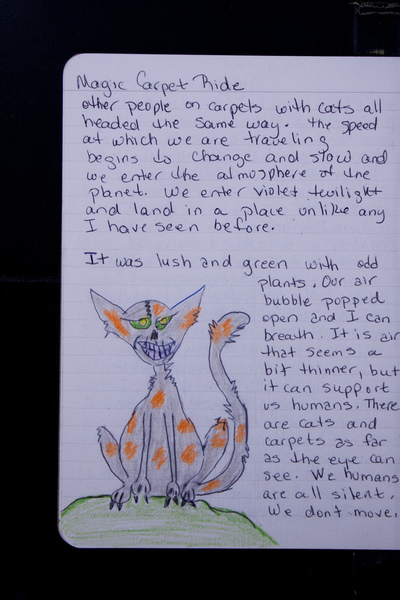 Magic Carpet Ride
other people on carpets with cats all
headed the same way. The speed
at which we are traveling
begins to change and slow and
we enter the atmosphere of the
planet. We enter violet twilight
and land in a place unlike any
I have seen before.
It was lush and green with odd
plants. Our air
bubble popped
open and I can
breath. It is air
that seems a
bit thinner, but
it can support
us humans. There
are cats and
carpets as far
as the eye can
see. We humans
are all silent.
We dont move.